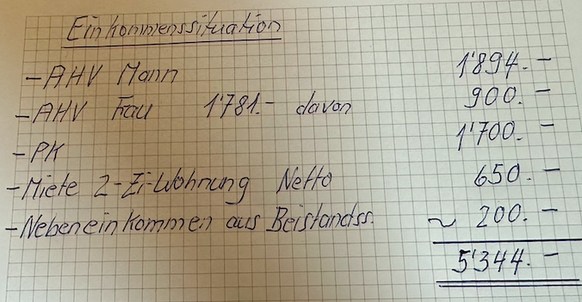 Einkommenssituation
- AHV Mann 1'894.-
- AHV Frau 1'781.- davon 900.-
- PK 1'700.-
- Miete 2-Zi-Wohnung Netto 650.-
- Nebeneinkommen aus Beistandss. ~ 200.-
5'344.-